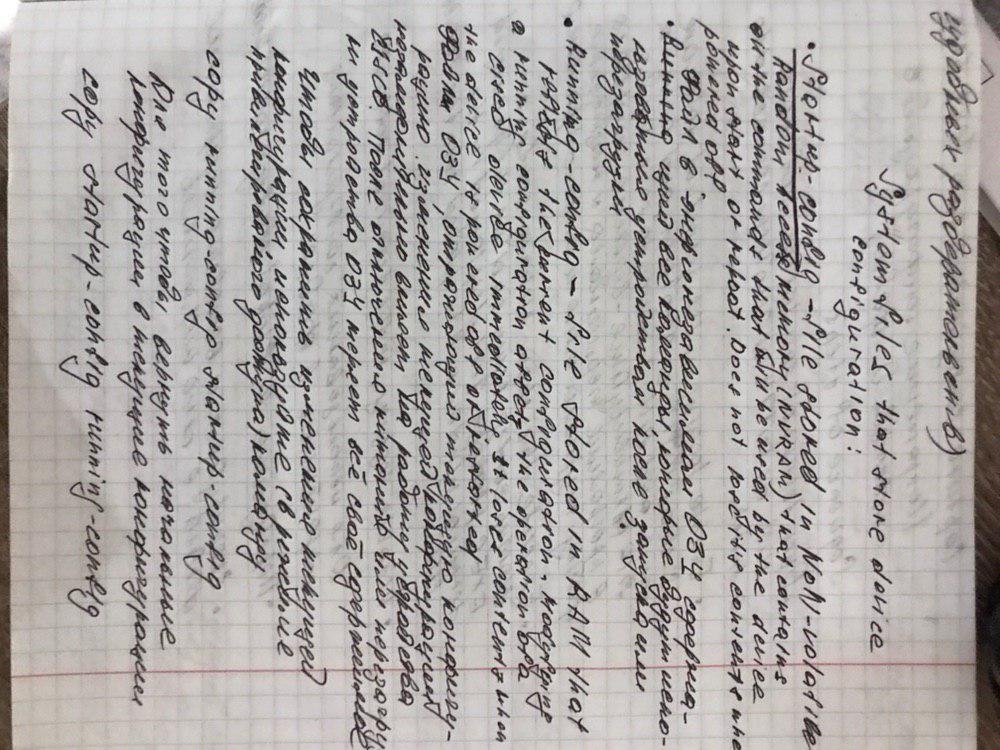 System files that store device
configuration:
• Startup-config – file stored in Non-volatile
memory (NVRAM) that contains
all the commands that will be used by the device
upon start or reboot. Does not lost its contents
powered off
файл в энергонезависимой ОЗУ содержа-
все команды, которые будут испо-
устройством после запуска или
перезагрузки
• Running-config – file stored in RAM that
the current configuration. modifying
a running configuration affects the operation of a
Cisco device immediately. It loses content when
the device is powered off or restarted
файл ОЗУ, отражающий текущую конфигу-
рацию. изменение текущей конфигурации
незамедлительно влияет на работу устройства
Cisco. После отключения питания или перезагру
и устройства ОЗУ теряет всё своё содержимое
Чтобы сохранить изменения текущей
конфигурации, используйте (в режиме
привилегированного доступа) команду
copy running-config startup-config
Для того чтобы, вернуть начальные
конфигурации в текущие конфигурации
copy startup-config running-config